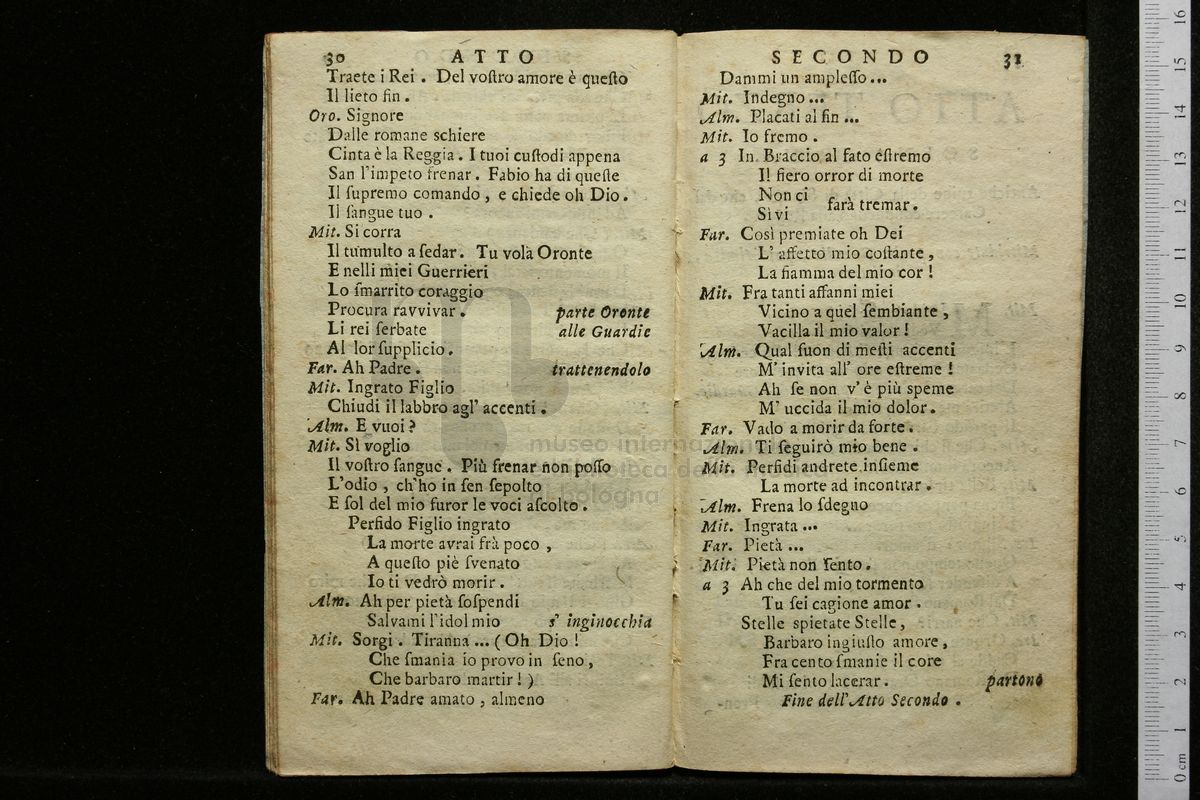 30 ATTO
Traete i Rei . Del voſtro amore è queſto
Il lieto fin .
Oro. Signore
Dalle romane schiere
Cinta è la Reggia . I tuoi cuſtodi appena
San l'impeto frenar . Fabio ha di queſte
Il ſupremo comando , e chiede oh Dio .
Il ſangue tuo .
Mit. Si corra
Il tumulto a ſedar . Tu vola Oronte
E nelli miei Guerrieri
Lo ſmarrito coraggio
Procura ravvivar . parte Oronte
Li rei ſerbate alle Guardie
Al lor ſupplicio .
Far. Ah Padre . trattenendolo
Mit. Ingrato Figlio
Chiudi il labbro agl' accenti .
Alm. E vuoi ?
Mit. Sì voglio
Il voſtro ſangue . Più frenar non poſſo
L'odio , ch'ho in ſen ſepolto
E ſol del mio furor le voci aſcolto .
Perfido Figlio ingrato
La morte avrai frà poco ,
A queſto piè ſvenato
Io ti vedrò morir .
Alm. Ah per pietà ſoſpendi
Salvami l'idol mio s' inginocchia
Mit. Sorgi . Tiranna ... ( Oh Dio !
Che ſmania io provo in ſeno ,
Che barbaro martir ! )
Far. Ah Padre amato , almeno
SECONDO 31
Dammi un ampleſſo ...
Mit. Indegno ...
Alm. Placati al fin ...
Mit. Io fremo .
a 3 In Braccio al fato eſtremo
Il fiero orror di morte
Non ci
Sì vi farà tremar .
Far. Così premiate oh Dei
L' affetto mio coſtante ,
La fiamma del mio cor !
Mit. Fra tanti affanni miei
Vicino a quel ſembiante ,
Vacilla il mio valor !
Alm. Qual ſuon di meſti accenti
M' invita all' ore eſtreme !
Ah ſe non v' è più speme
M' uccida il mio dolor .
Far. Vado a morir da forte .
Alm. Ti ſeguirò mio bene .
Mit. Perfidi andrete inſieme
La morte ad incontrar .
Alm. Frena lo ſdegno
Mit. Ingrata ...
Far. Pietà ...
Mit. Pietà non ſento .
a 3 Ah che del mio tormento
Tu ſei cagione amor .
Stelle spietate Stelle ,
Barbaro ingiuſto amore ,
Fra cento ſmanie il core
Mi ſento lacerar . partono
Fine dell' Atto Secondo .
museo internazionale
biblioteca della
di bologna
0 cm 1 2 3 4 5 6 7 8 9 10 11 12 13 14 15 16